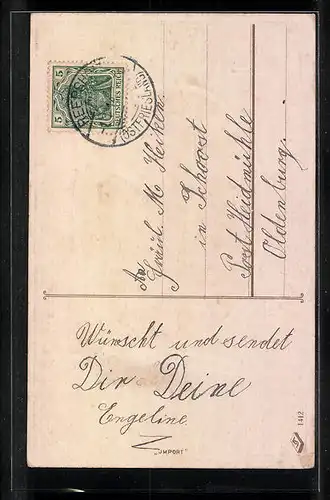 5
DEUTSCHES REICH
(OSTFRIESLAND)
An
Fräul. M. Heiken
in Schoost
Post Heidmühle
Oldenburg.
Wünscht und sendet
Dir Deine
Engeline
"IMPORT"
1412